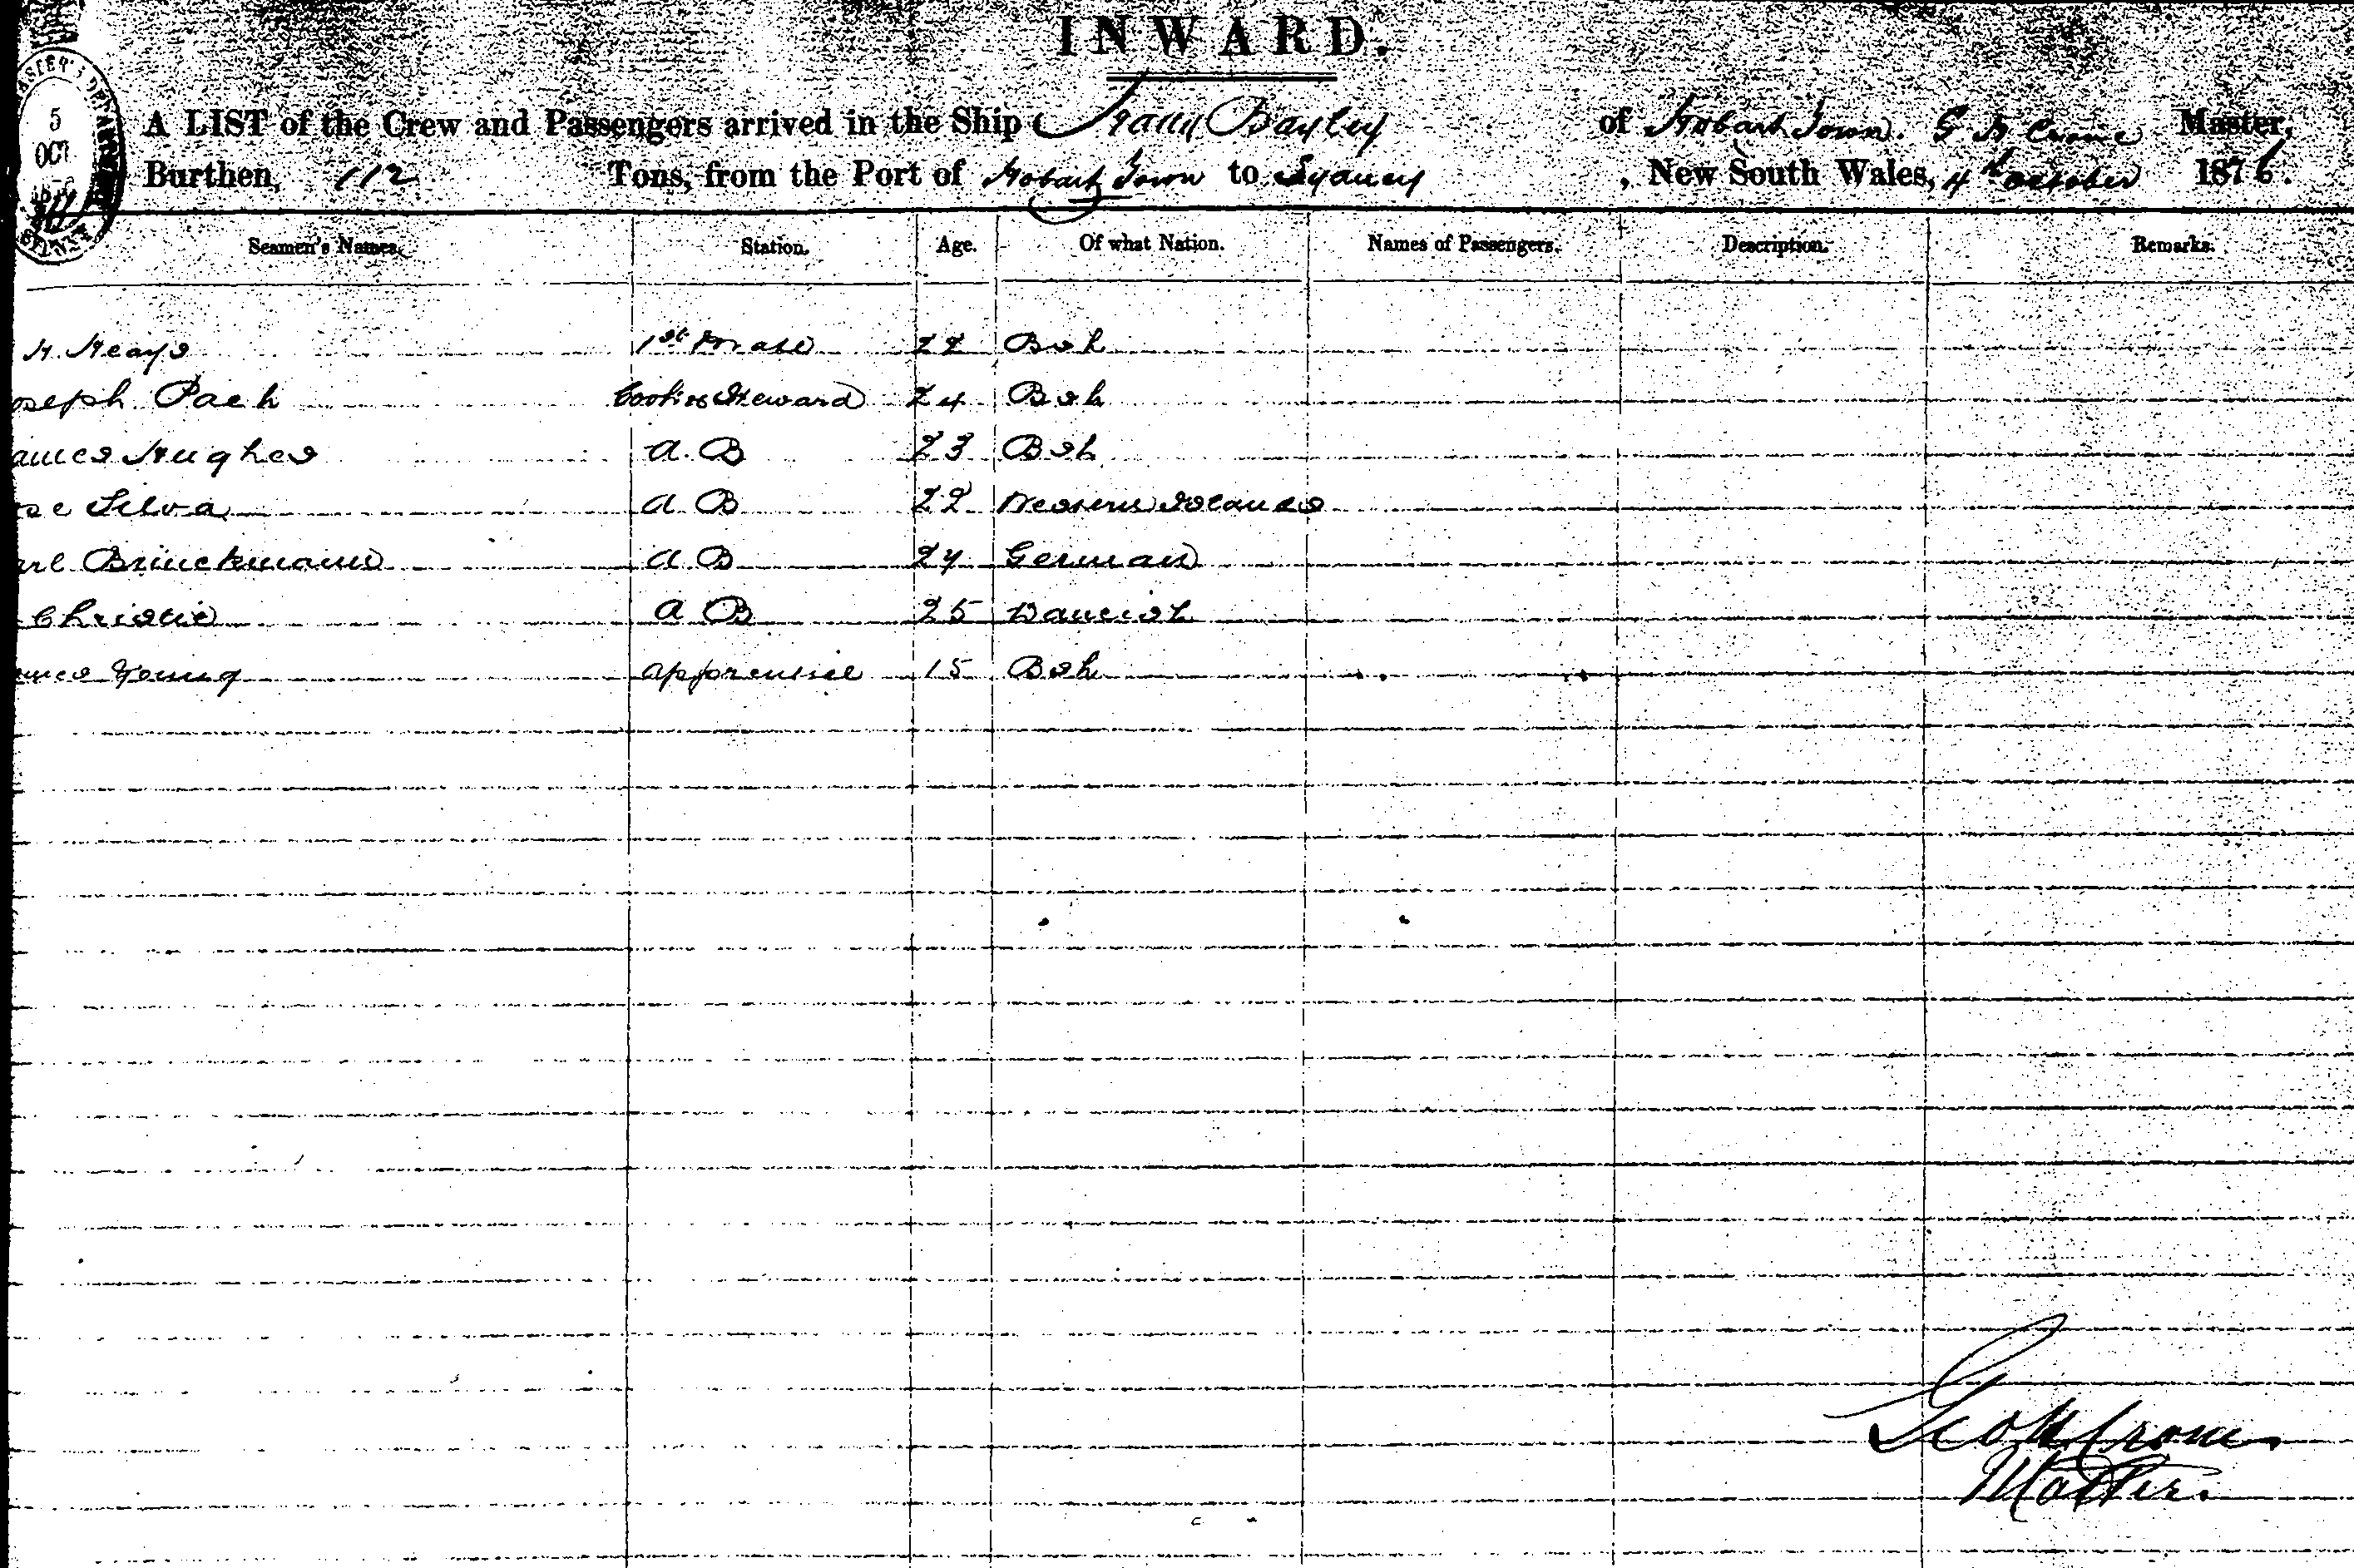 INWARD.
A LIST of the Crew and Passengers arrived in the Ship Bayley of Hobart Town. G H Crome Master,
Burthen, 112 Tons, from the Port of Hobart Town to Sydney, New South Wales, 4th October 1876.
5
OCT
Seamen's Names. Station. Age. Of what Nation. Names of Passengers. Description. Remarks.
H. Heays 1st Mate 22 Bsh
oseph Pach Cook & Steward 24 Bsh
ames Hughes A.B 23 Bsh
ose Silva A B 22 Western Islands
arl Brinckmann A B 24 German
Christie A B 25 Danish
ames Young apprentice 15 Bsh
Geo H Crome
Master.